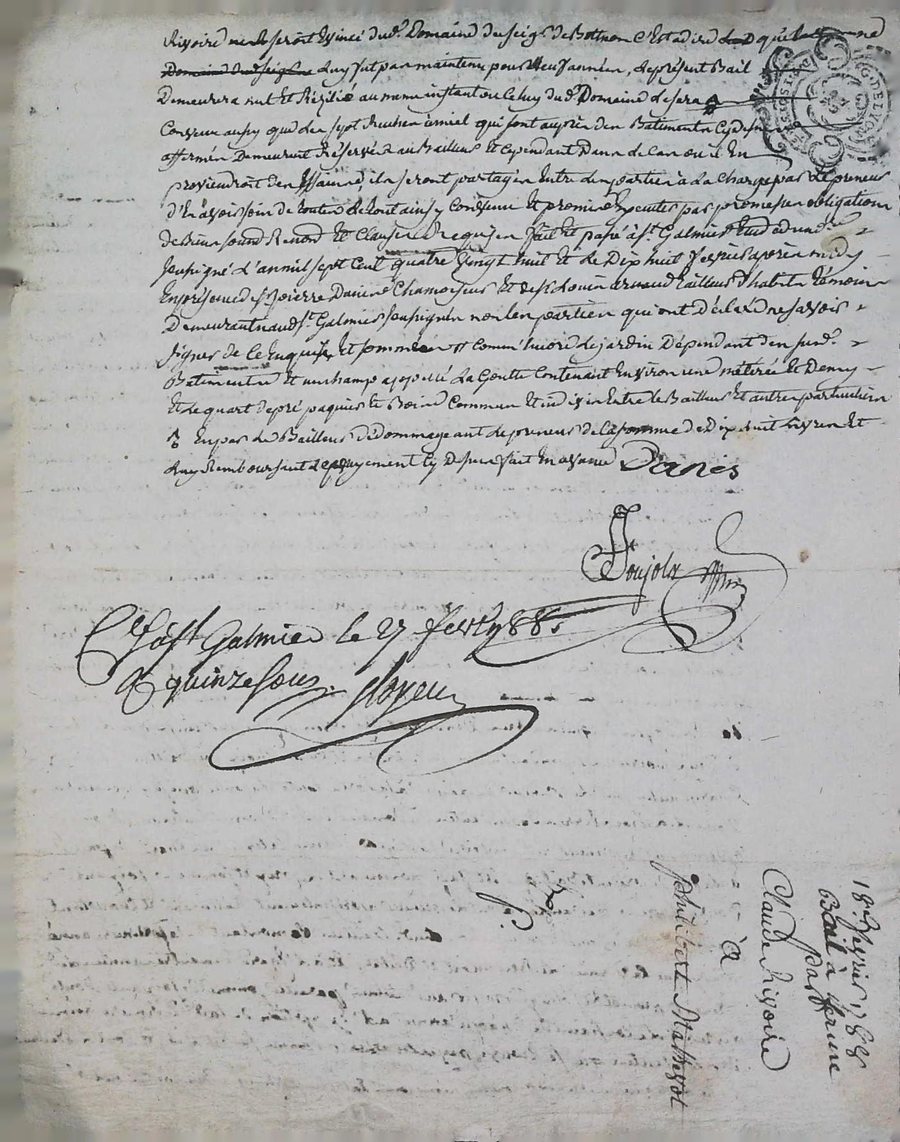 Rivoire seroit Evincé dud. Domaine du seigr. de Botheon C'Est adire que
Luy fut pas maintenu pour Neuf années, Le présent Bail
Demeurera nul Et Résilié au meme instant ou Celuy dud. Domaine le sera
Convenu aussy que les sept Ruches qui sont auprès des Batiments Cy dessus
affermés Demeurent Réservés au Bailleur Et Cependant Dans le Cas ou il En
proviendroit des Essaims, ils seront partagés Entre les parties à La Charge par Le preneur
d'En avoir soin Convenu Et promis Executer par promesses obligations
de Biens soumd Renond Et Clauses Requises fait Et passé à St. Galmier Etude du nre.
soussigné L'an mil sept Cent quatre Vingt huit Et Le Dix huit fevrier après midy
En présence de sr. pierre Daniere Chamoiseur Et de sr. arnaud Tailleur d'habits Témoins
Demeurant aud. St. Galmier soussignés non les parties qui ont Déclaré ne savoir
signer de Ce Enquises Et sommées Comm' Encore Le jardin Dépendant des susd.
Batiments Et un champ appellé La Goutte Contenant Environ une métérée Et Demy
Et Le quart de pré paquier Commun Et indivis Entre Le Bailleur Et autres particuliers
En par Le Bailleur Dédommageant Le preneur de La somme de Dix huit Livres Et
Luy Remboursant Le payement Cy Dessus fait En avance Danier
Soujols
Cé à St Galmier le 27 fevr 1788
R quinze sous
18e. fevrier 1788
Bail à ferme
par
Claude Rivoire
à
philibert Mathevot